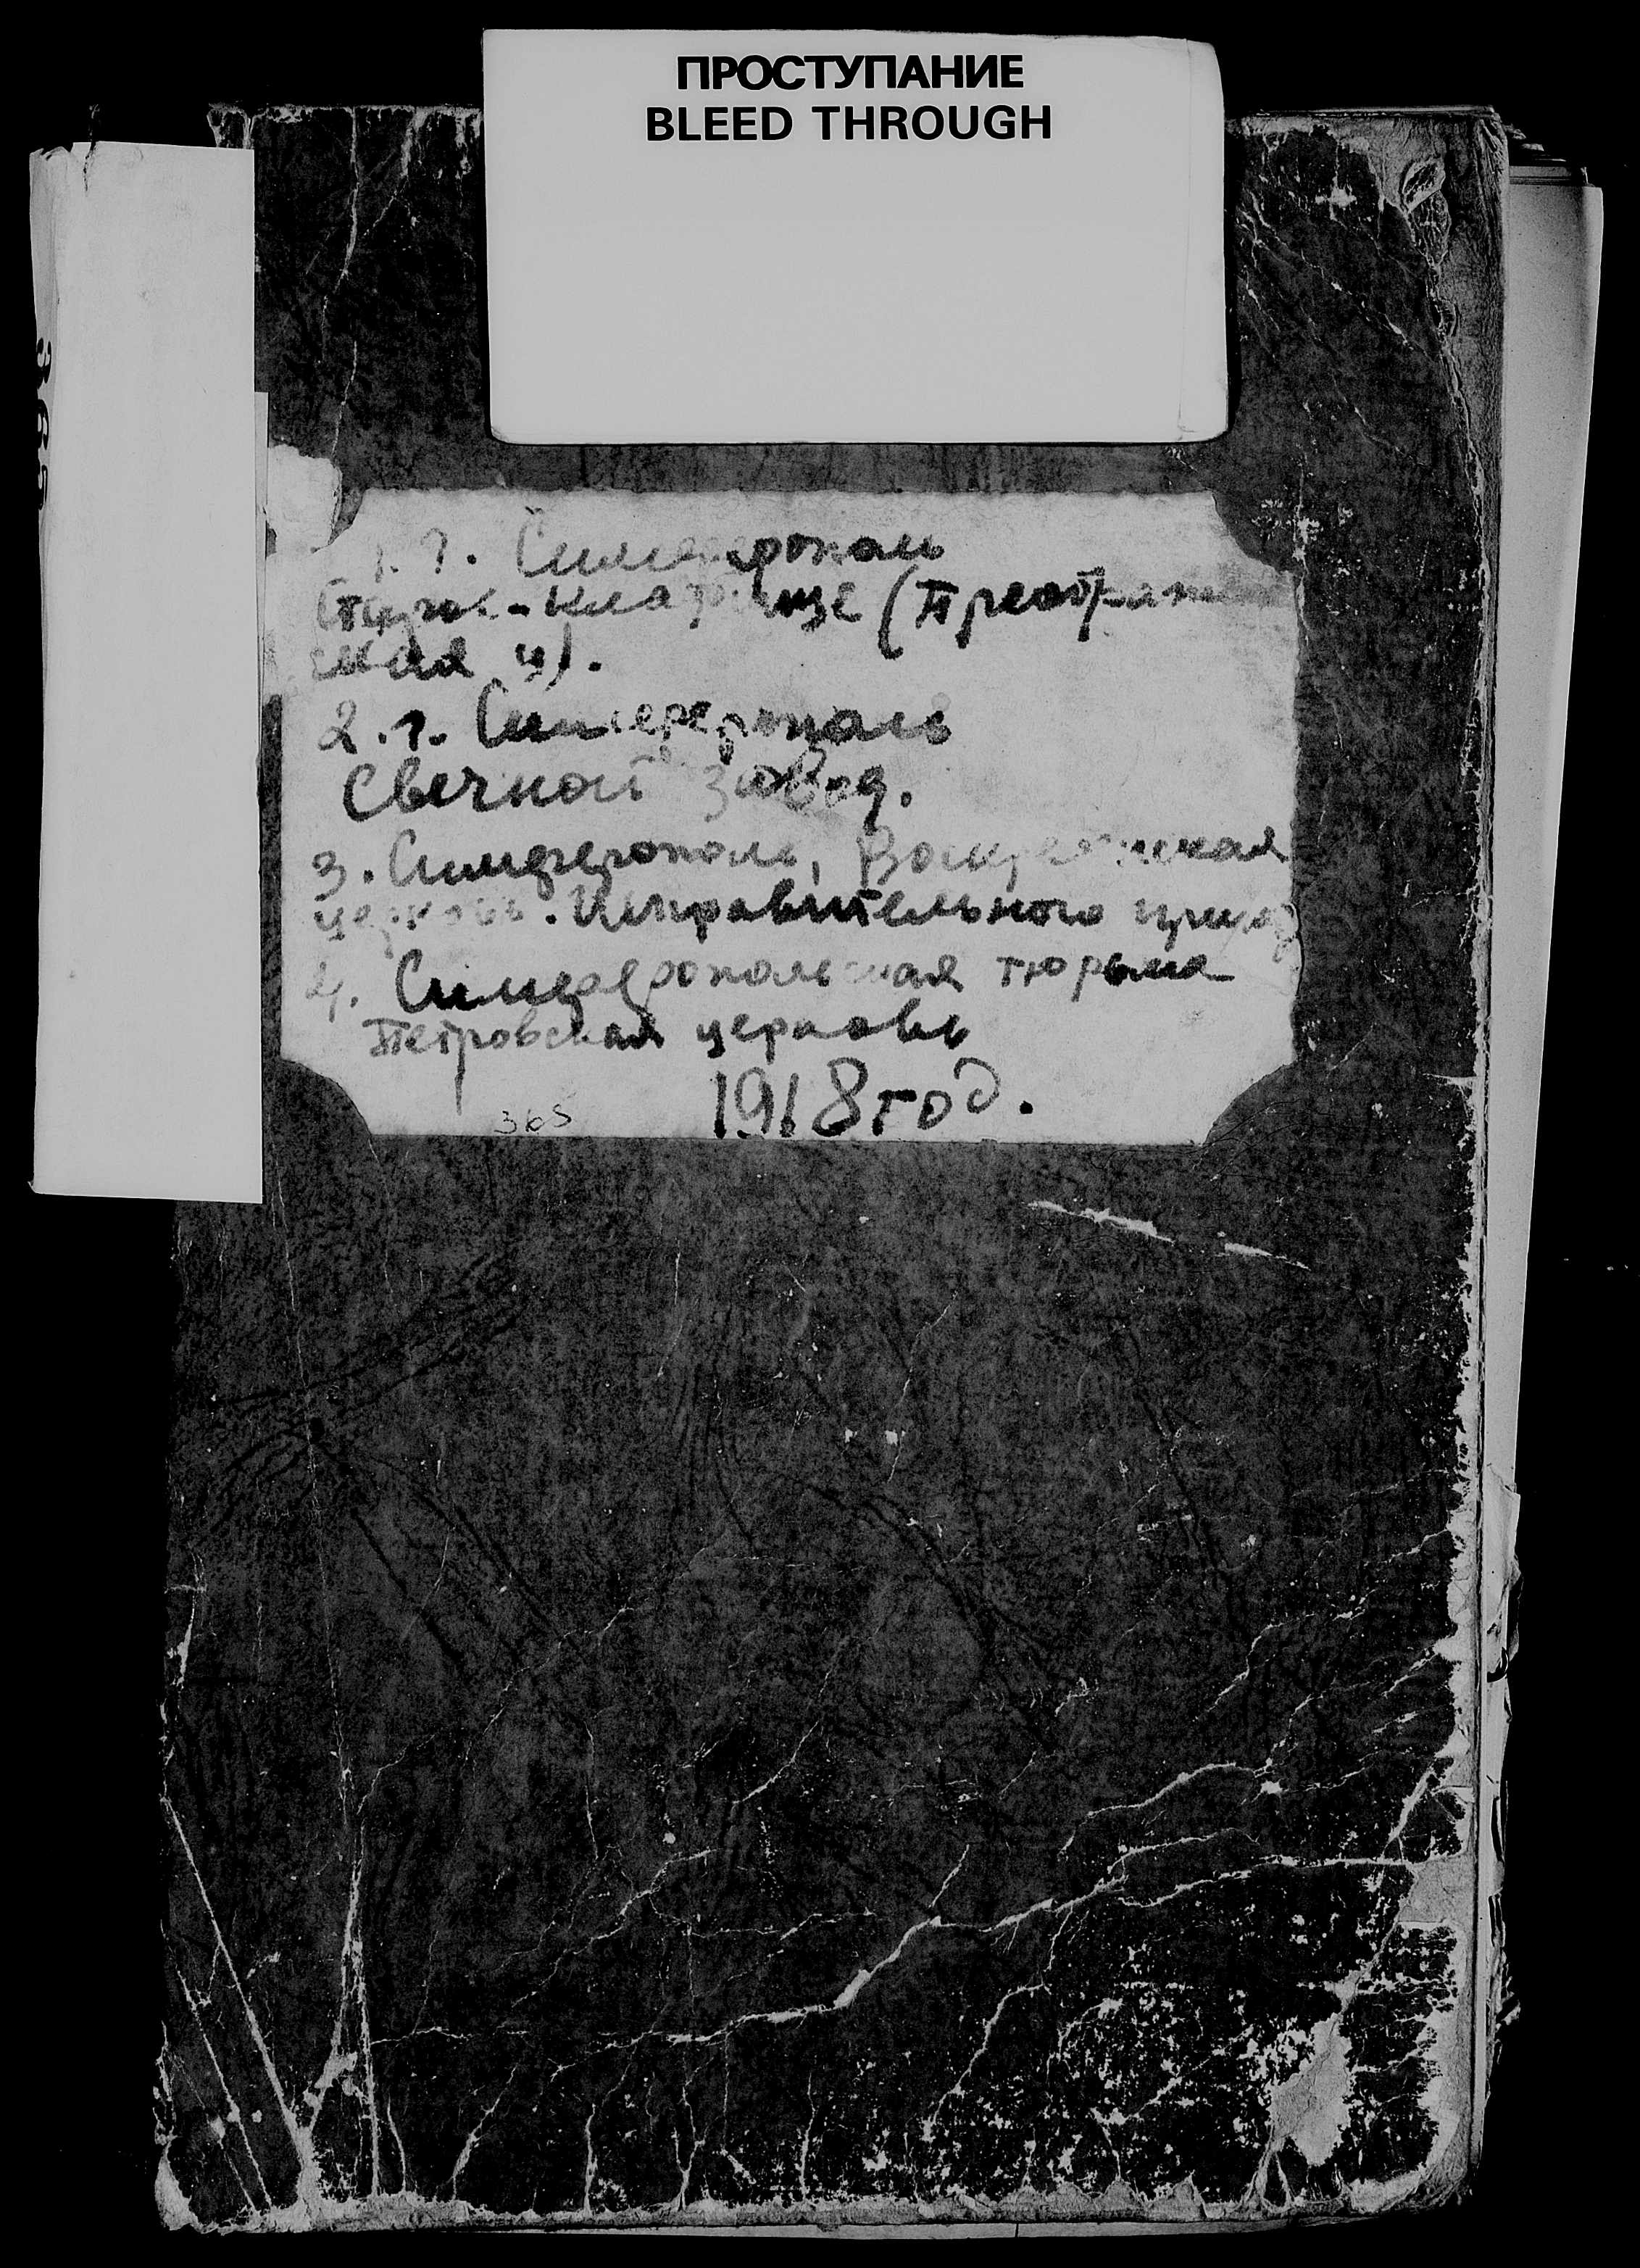 ПРОСТУПАНИЕ
BLEED THROUGH
365
1. г. Симферополь
кладбище (Преображен
ская ц).
2. г. Симферополь
Свечной завод.
3. Симферополь, Воскресенская
церковь. Исправительного
4. Симферопольская тюрьма
Петровская церковь
1918 год.
365